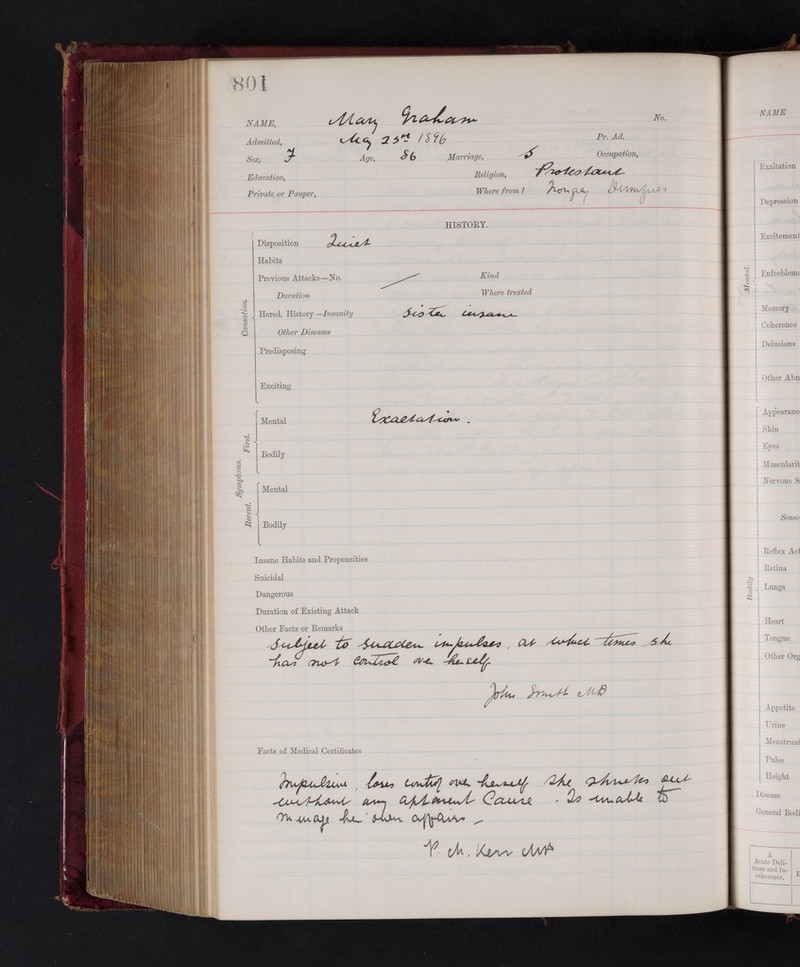 801
NAME, Mary Graham No.
Admitted, May 23rd 1896 Pr. Ad.
Sex, F Age, 36 Marriage, S Occupation,
Education, Religion, Protestant
Private or Pauper, Where from? Dumfries
HISTORY.
Causation.
Disposition Quiet
Habits
Previous Attacks—No. Kind
Duration Where treated
Hered. History—Insanity Sister insane
Other Diseases
Predisposing
Exciting
Symptoms.
First.
Mental Exaltation.
Bodily
Recent.
Mental
Bodily
Insane Habits and Propensities
Suicidal
Dangerous
Duration of Existing Attack
Other Facts or Remarks
Subject to sudden impulses, at which times she
has not control over herself
John Smith MD
Facts of Medical Certificates
Impulsive, loses control over herself She shrieks out
without any apparent Cause - Is unable to
manage her own affairs –
P. M. Kerr MB
NAME
Mental.
Exaltation
Depression
Excitement
Enfeeblem
Memory
Coherence
Delusions
Other Abn
Bodily
Appearanc
Skin
Eyes
Muscularit
Nervous S
Senso
Reflex Act
Retina
Lungs
Heart
Tongue
Other Org
Appetite
Urine
Menstruat
Pulse
Height
Disease
General Bodi
A
Acute Deli-
rium and In-
coherence.